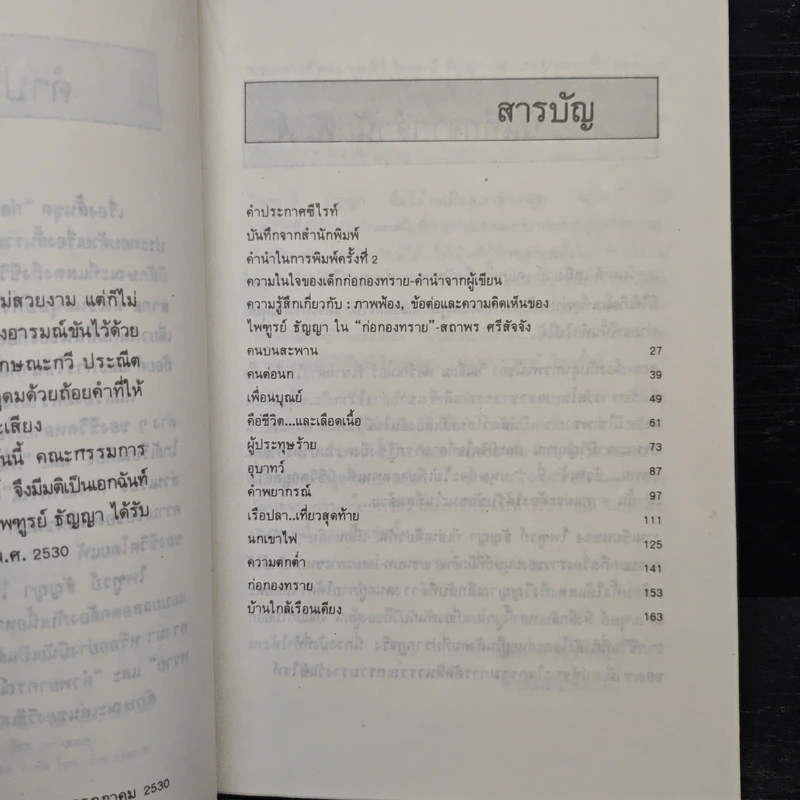 ม่สวยงาม แต่ก็ไม่
งอารมณ์ขันไว้ด้วย
กษณะกวี ประณีต
ดมด้วยถ้อยคำที่ให้
ะเสียง
นนี้ คณะกรรมการ
จึงมีมติเป็นเอกฉันท์
พฑูรย์ ธัญญา ได้รับ
.ศ. 2530
กฎาคม 2530
สารบัญ
คำประกาศซีไรท์
บันทึกจากสำนักพิมพ์
คำนำในการพิมพ์ครั้งที่ 2
ความในใจของเด็กก่อกองทราย-คำนำจากผู้เขียน
ความรู้สึกเกี่ยวกับ : ภาพฟ้อง, ข้อต่อและความคิดเห็นของ
ไพฑูรย์ ธัญญา ใน "ก่อกองทราย"-สถาพร ศรีสัจจัง
คนบนสะพาน 27
คนต่อนก 39
เพื่อนบุณย์ 49
คือชีวิต...และเลือดเนื้อ 61
ผู้ประทุษร้าย 73
อุบาทว์ 87
คำพยากรณ์ 97
เรือปลา..เที่ยวสุดท้าย 111
นกเขาไฟ 125
ความตกต่ำ 141
ก่อกองทราย 153
บ้านใกล้เรือนเคียง 163